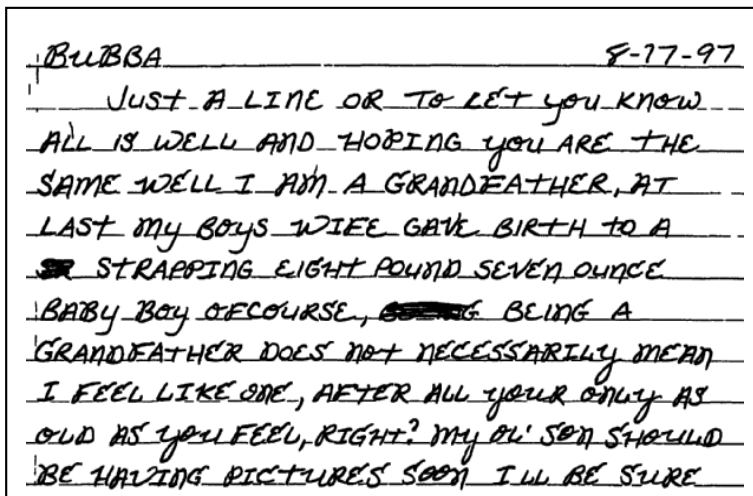 BUBBA 8-17-97
JUST A LINE OR TO LET you KNOW
ALL IS WELL AND HOPING you ARE THE
SAME WELL I AM A GRANDFATHER, AT
LAST My BOYS WIFE GAVE BIRTH TO A
STRAPPING EIGHT POUND SEVEN OUNCE
BABY BOY OFCOURSE, BEING A
GRANDFATHER DOES NOT NECESSARILY MEAN
I FEEL LIKE ONE, AFTER ALL yOUR ONLY AS
OLD AS yOU FEEL, RIGHT? My OL' SON SHOULD
BE HAVING PICTURES SOON ILL BE SURE